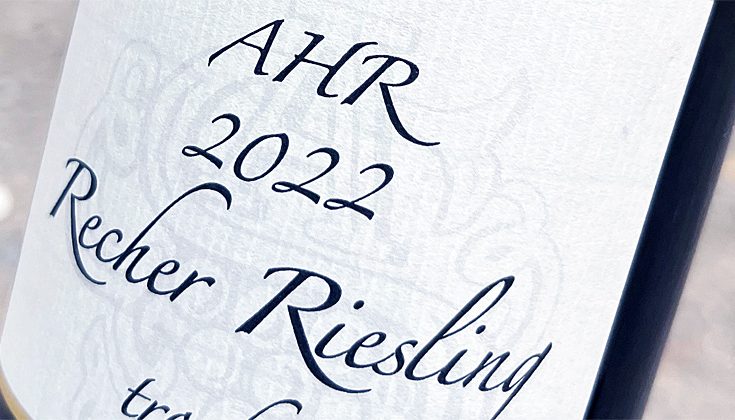 AHR
2022
Recher Riesling